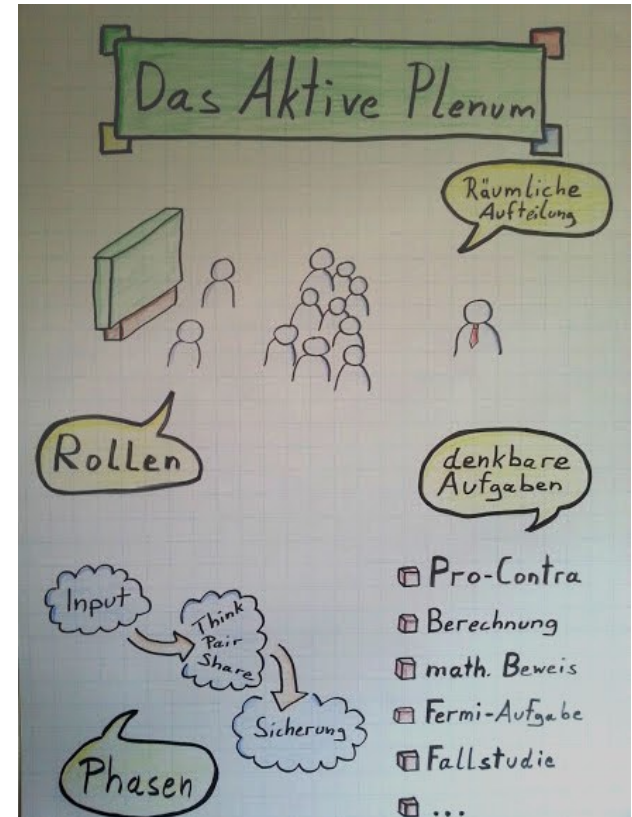 Das Aktive Plenum
Räumliche
Aufteilung
Rollen
denkbare
Aufgaben
Pro-Contra
Berechnung
math. Beweis
Fermi-Aufgabe
Fallstudie
...
Input
Think
Pair
Share
Sicherung
Phasen